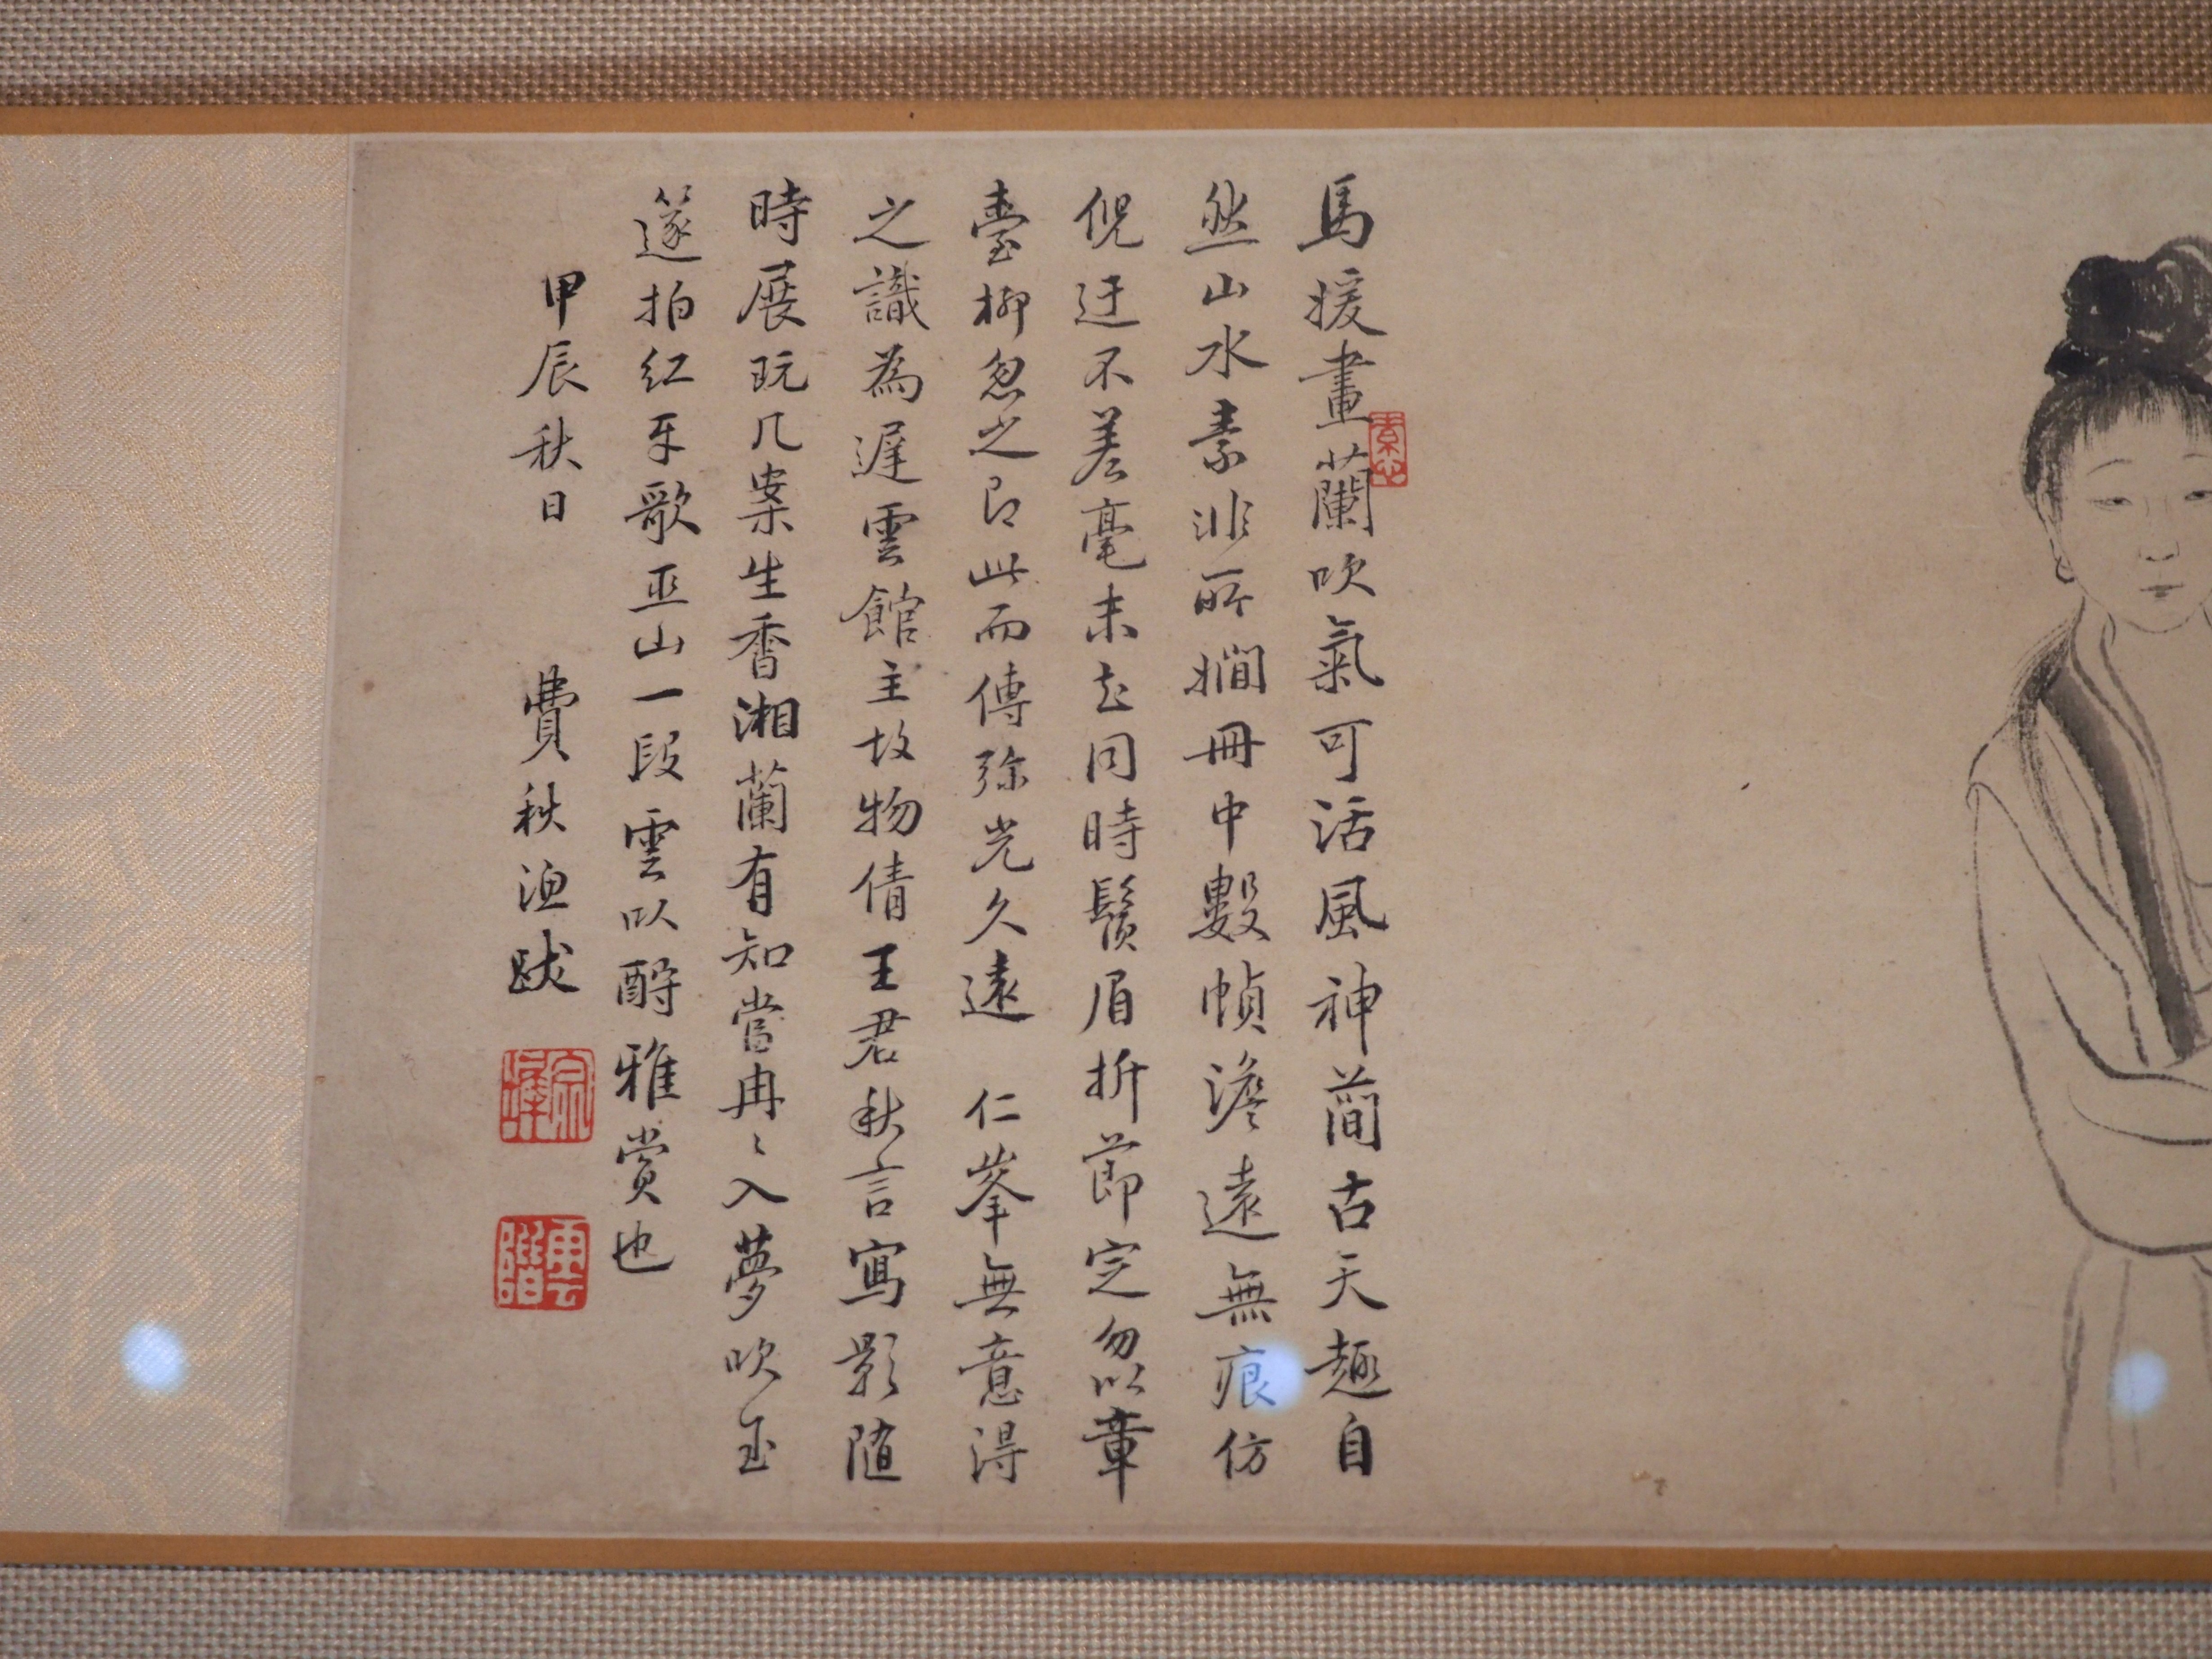 馬媛畫蘭吹氣可活風神蕳古天趣自
然山水素非所嫺冊中數幀澹遠無痕仿
倪迂不差毫末志同時鬚眉折節定勿以章
臺柳忽之即此而傳弥光久遠 仁峯無意得
之識為遲雲館主故物倩王君秋言寫影隨
時展玩几案生香湘蘭有知當冉〻入夢吹玉
篴拍紅牙歌巫山一段雲以酹雅賞也
甲辰秋日 費秋漁跋